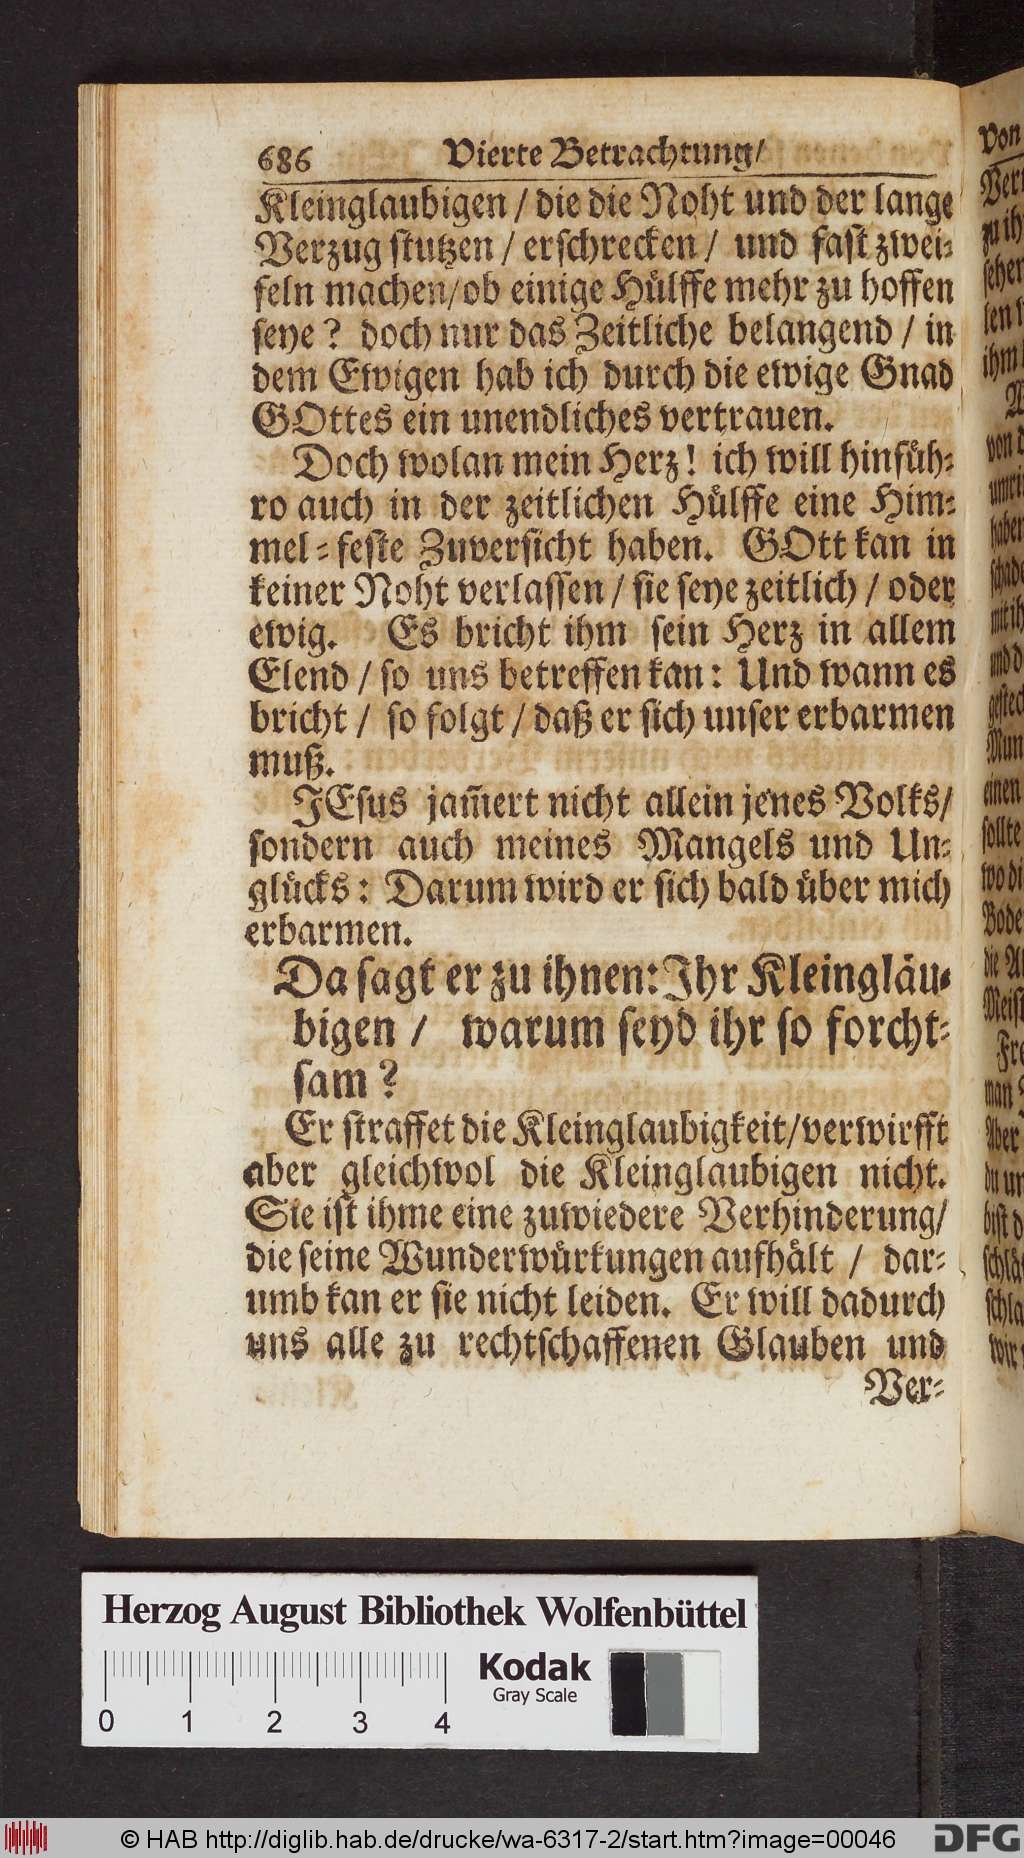 686 Vierte Betrachtung/
Kleinglaubigen / die die Noht und der lange
Verzug stutzen / erschrecken / und fast zwei-
feln machen/ob einige Hülffe mehr zu hoffen
seye? doch nur das Zeitliche belangend / in
dem Ewigen hab ich durch die ewige Gnad
GOttes ein unendliches vertrauen.
Doch wolan mein Herz! ich will hinfüh-
ro auch in der zeitlichen Hülffe eine Him-
mel-feste Zuversicht haben. GOtt kan in
keiner Noht verlassen / sie seye zeitlich / oder
ewig. Es bricht ihm sein Herz in allem
Elend / so uns betreffen kan: Und wann es
bricht / so folgt / daß er sich unser erbarmen
muß.
JEsus jam̃ert nicht allein jenes Volks/
sondern auch meines Mangels und Un-
glücks: Darum wird er sich bald über mich
erbarmen.
Da sagt er zu ihnen: Ihr Kleingläu-
bigen / warum seyd ihr so forcht-
sam?
Er straffet die Kleinglaubigkeit/verwirfft
aber gleichwol die Kleinglaubigen nicht.
Sie ist ihme eine zuwiedere Verhinderung/
die seine Wunderwürkungen aufhält / dar-
umb kan er sie nicht leiden. Er will dadurch
uns alle zu rechtschaffenen Glauben und
Ver-
Von
Herzog August Bibliothek Wolfenbüttel
Kodak
Gray Scale
0 1 2 3 4
© HAB http://diglib.hab.de/drucke/wa-6317-2/start.htm?image=00046
DFG